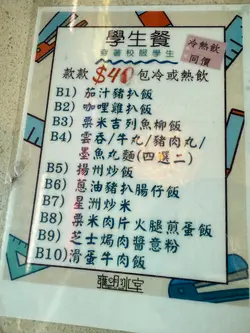 學生餐
穿著校服學生
冷熱飲
同價
款款$40包冷或熱飲
B1) 茄汁豬扒飯
B2) 咖哩雞扒飯
B3) 粟米吉列魚柳飯
B4) 雲吞/牛丸/豬肉丸/
墨魚丸麵(四選二)
B5) 揚州炒飯
B6) 蔥油豬扒腸仔飯
B7) 星洲炒米
B8) 粟米肉片火腿煎蛋飯
B9) 芝士焗肉醬意粉
B10) 滑蛋牛肉飯
冰室